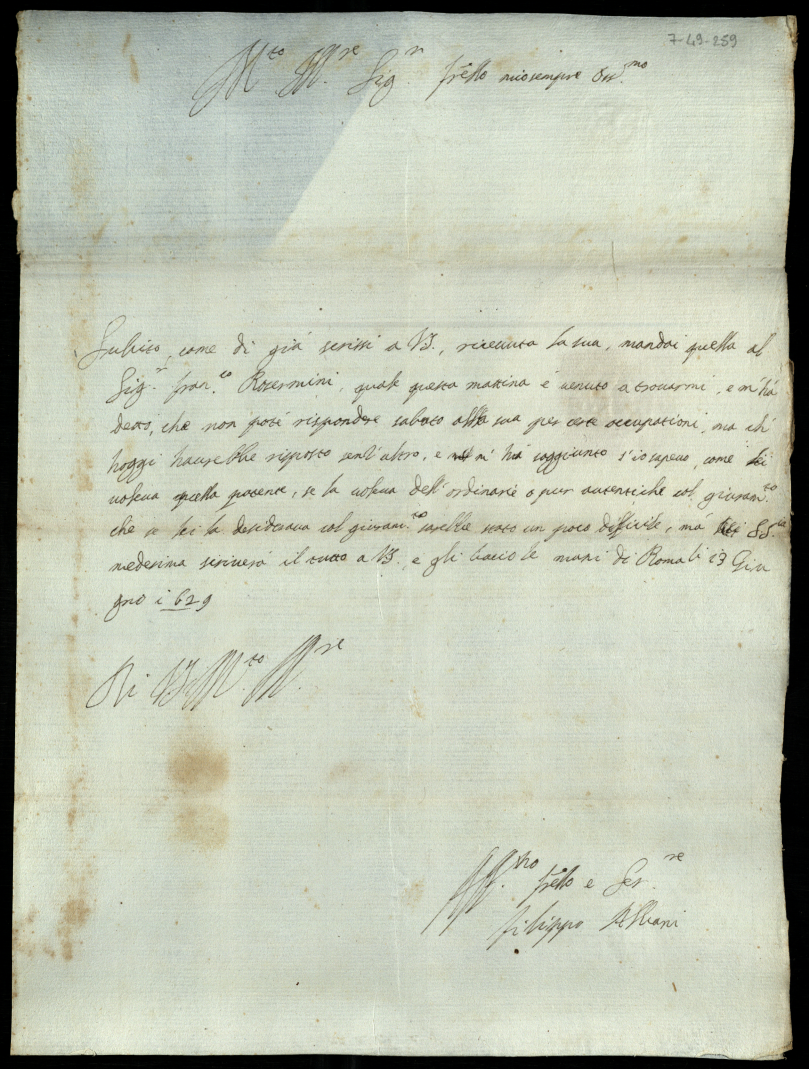 7-49-259
M.to Ill.re Sig.r frello mio sempre Oss.mo
Subito, come di già scrissi a VS., riceuuta la sua, mandai quella al
Sig.r Fran.co Rosermini, quale questa mattina è uenuto a trouarmi, e m'hà
detto, che non potè rispondere sabato alla sua per certe occupationi, ma ch'
hoggi haurebbe risposto senz'altro, e m'hà soggiunto s'io sapeuo, come lei
uoleua quella patente, se la uoleua dell'ordinarie o pur autentiche col giuram.to
che se lei la desideraua col giuram.to sarebbe stato un poco difficile, ma SS.ria
medesima scriuerà il tutto a VS. e gli bacio le mani di Roma li 13 Giu
gno 1629
Di VS M.to Ill.re
Aff.mo frello e Ser.re
Filippo Albani